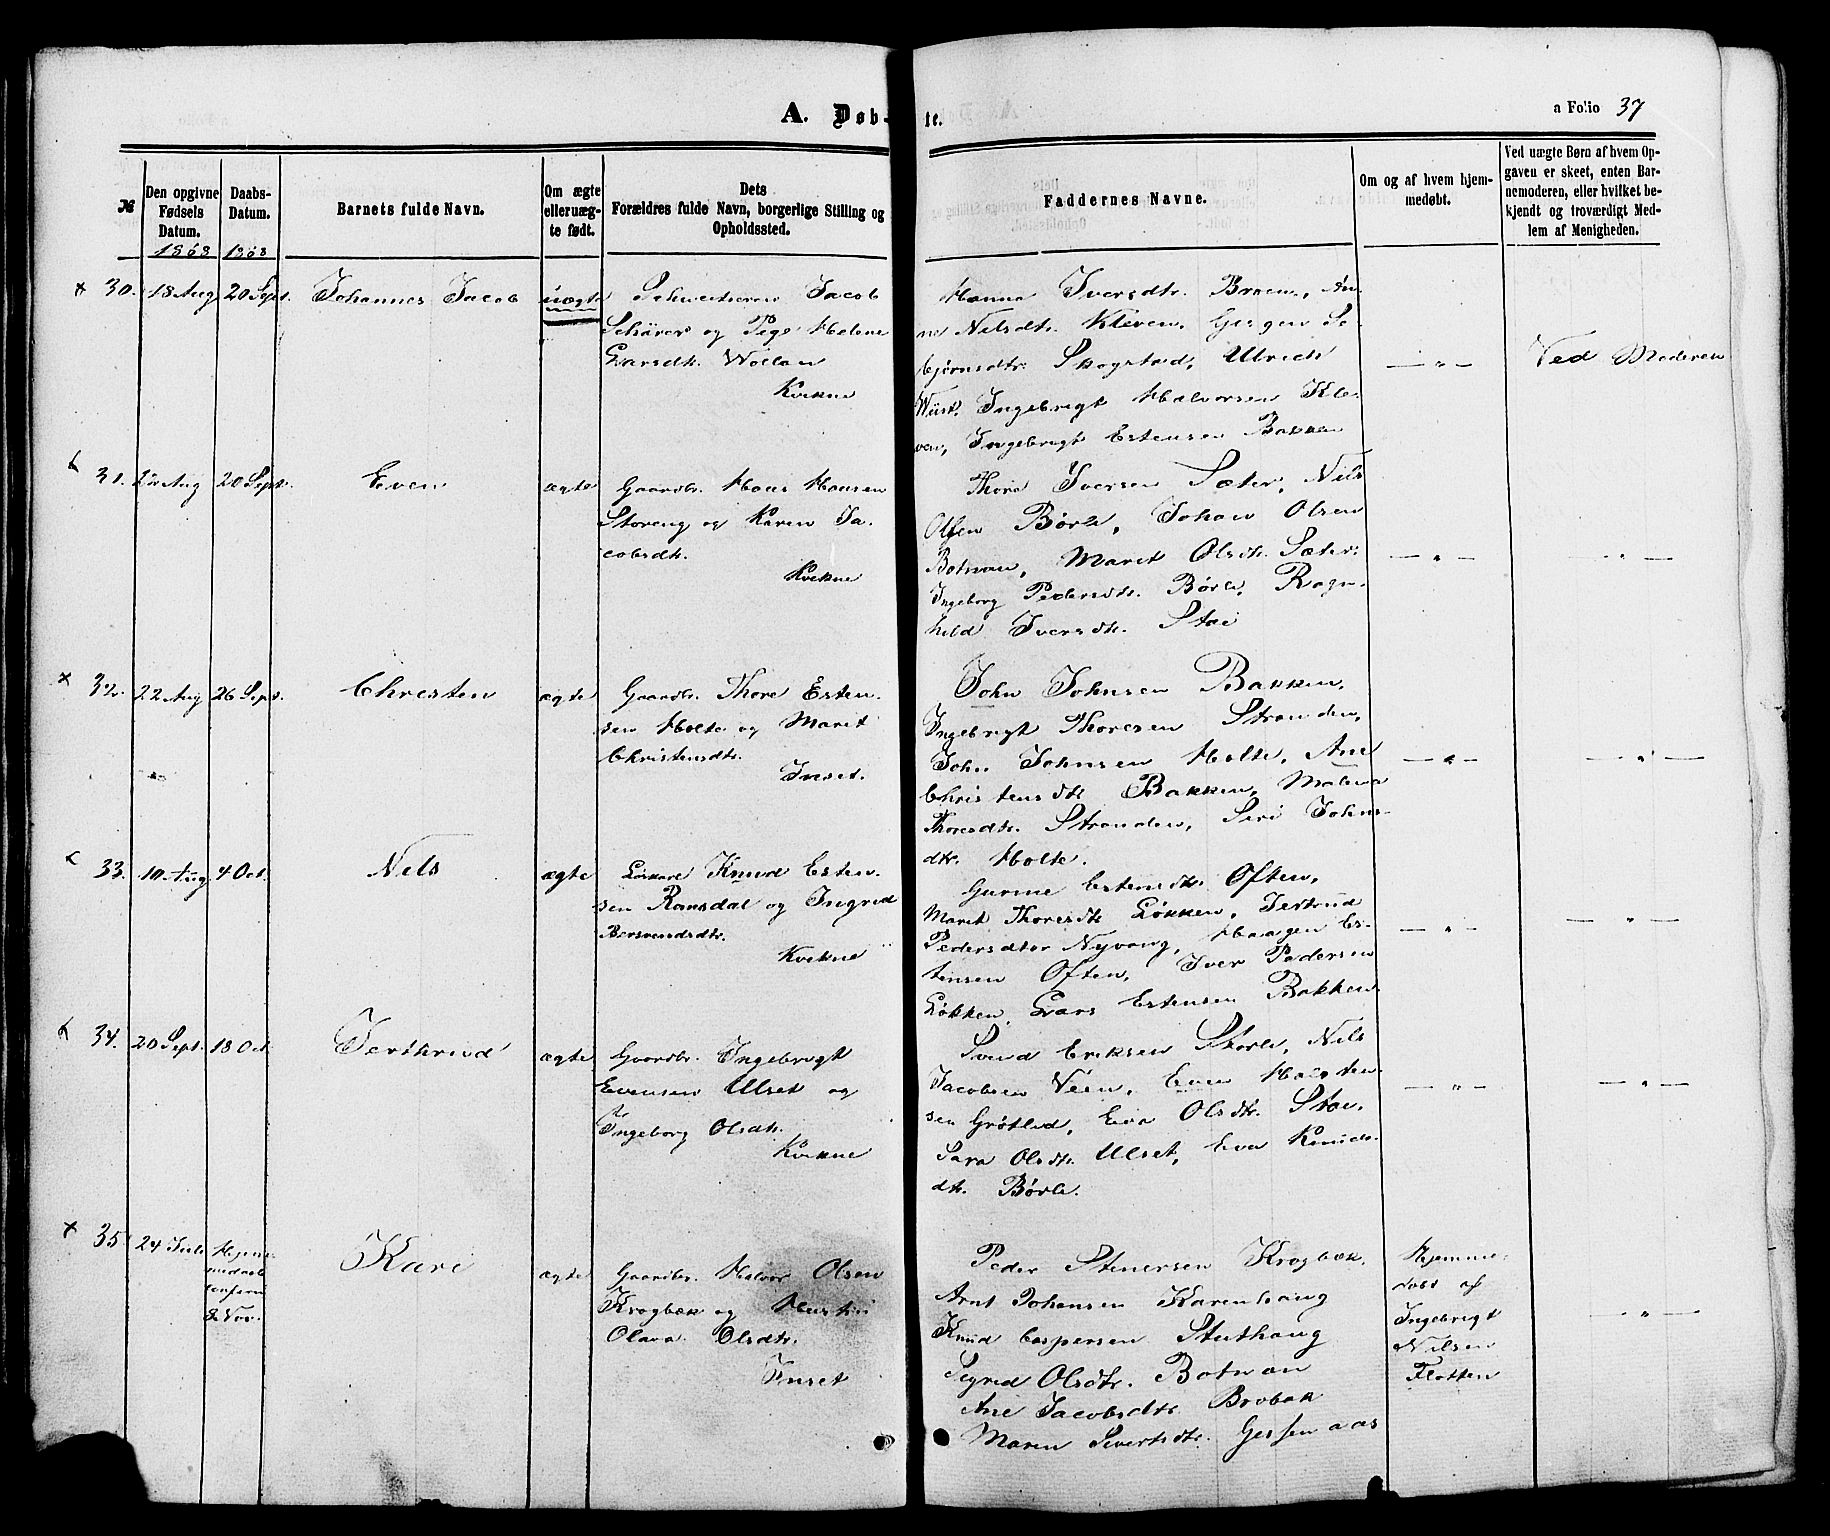 A. Døb-te.
a Folio 37
№
Den opgivne Fødsels Datum.
1868
Daabs-Datum.
1868
Barnets fulde Navn.
Om ægte eller uæg-te født.
Dets Forældres fulde Navn, borgerlige Stilling og Opholdssted.
Faddernes Navne.
Om og af hvem hjem-medøbt.
Ved uægte Børn af hvem Op-gaven er skeet, enten Bar-nemoderen, eller hvilket be-kjendt og troværdigt Med-lem af Menigheden.
30. 18 Aug 20 Sept. Johannes Jacob uægte
Schweitseren Jacob
Schärer og Helene
Larsdt. Wollan
Kvikne
Hanna Iversdtr. Broen, An-
ne Nilsdtr. Kleven,
bjørnsdtr. Skogstad, Ulrich
Wüst. Ingebrigt Halvorsen Kle-
ven, Ingebrigt Estensen Bakken
— " — Ved Moderen
31. Aug 20 Sept. Even ægte
Gaardbr. Hans Hansen
Storeng og Karen Ja-
cobsdtr.
Kvikne
Thore Iversen Sæter, Nils
Olsen Børli, Johan Olsen
Botnan, Marit Olsdtr. Sæter,
Ingeborg Pedersdtr. Børli, Ragn-
hild Iversdtr. Stai
— " — — " —
32. 22 Aug 26 Sept. Christen ægte
Gaardbr. Thore Esten-
sen Holte og Marit
Christensdtr.
Inset.
John Johnsen Bakken,
Ingebrigt Thoresen Stranden,
John Johnsen Holte, Ane
Christensdtr. Bakken, Malena
Thoresdtr. Stranden, Siri Johns-
dtr. Holte.
— " — — " —
33. 10 Aug 4 Oct. Nils ægte
Knud Esten-
sen Ramsdal og Ingrid
Bersvendsdtr.
Kvikne
Gurine Estensdtr. Often,
Marit Thoresdtr. Løkken, Jertrud
Pedersdtr Nyvang, Haagen Es-
tensen Often, Iver Pedersen
Løkken, Lars Estensen Bakken
— " — — " —
34. 20 Sept. 18 Oct. Jerthrud ægte
Gaardbr. Ingebrigt
Evensen Ulset og
Ingeborg Olsdtr.
Kvikne
Svend Eriksen Storli, Nils
Jacobsen Veien, Even Halsten-
sen Grøtlid, Eva Olsdtr. Stai,
Sara Olsdtr. Ulset, Eva Knuds-
dtr. Børli.
— " — — " —
35. 24 Juli Hjem-
medøbt
8 Nov. Kari ægte
Gaardbr. Halvor Olsen
Krogbæk og
Olava Olsdtr.
Inset
Peder Stenersen Krogbæk,
Arnt Johansen Karenhaug
Knud Caspersen Stuthaug
Sigrid Olsdtr. Botnan
Ane Jacobsdtr. Brobak
Maren Sivertsdtr.
Hjemme-
døbt af
Ingebrigt
Nilsen
Flatten
— " —